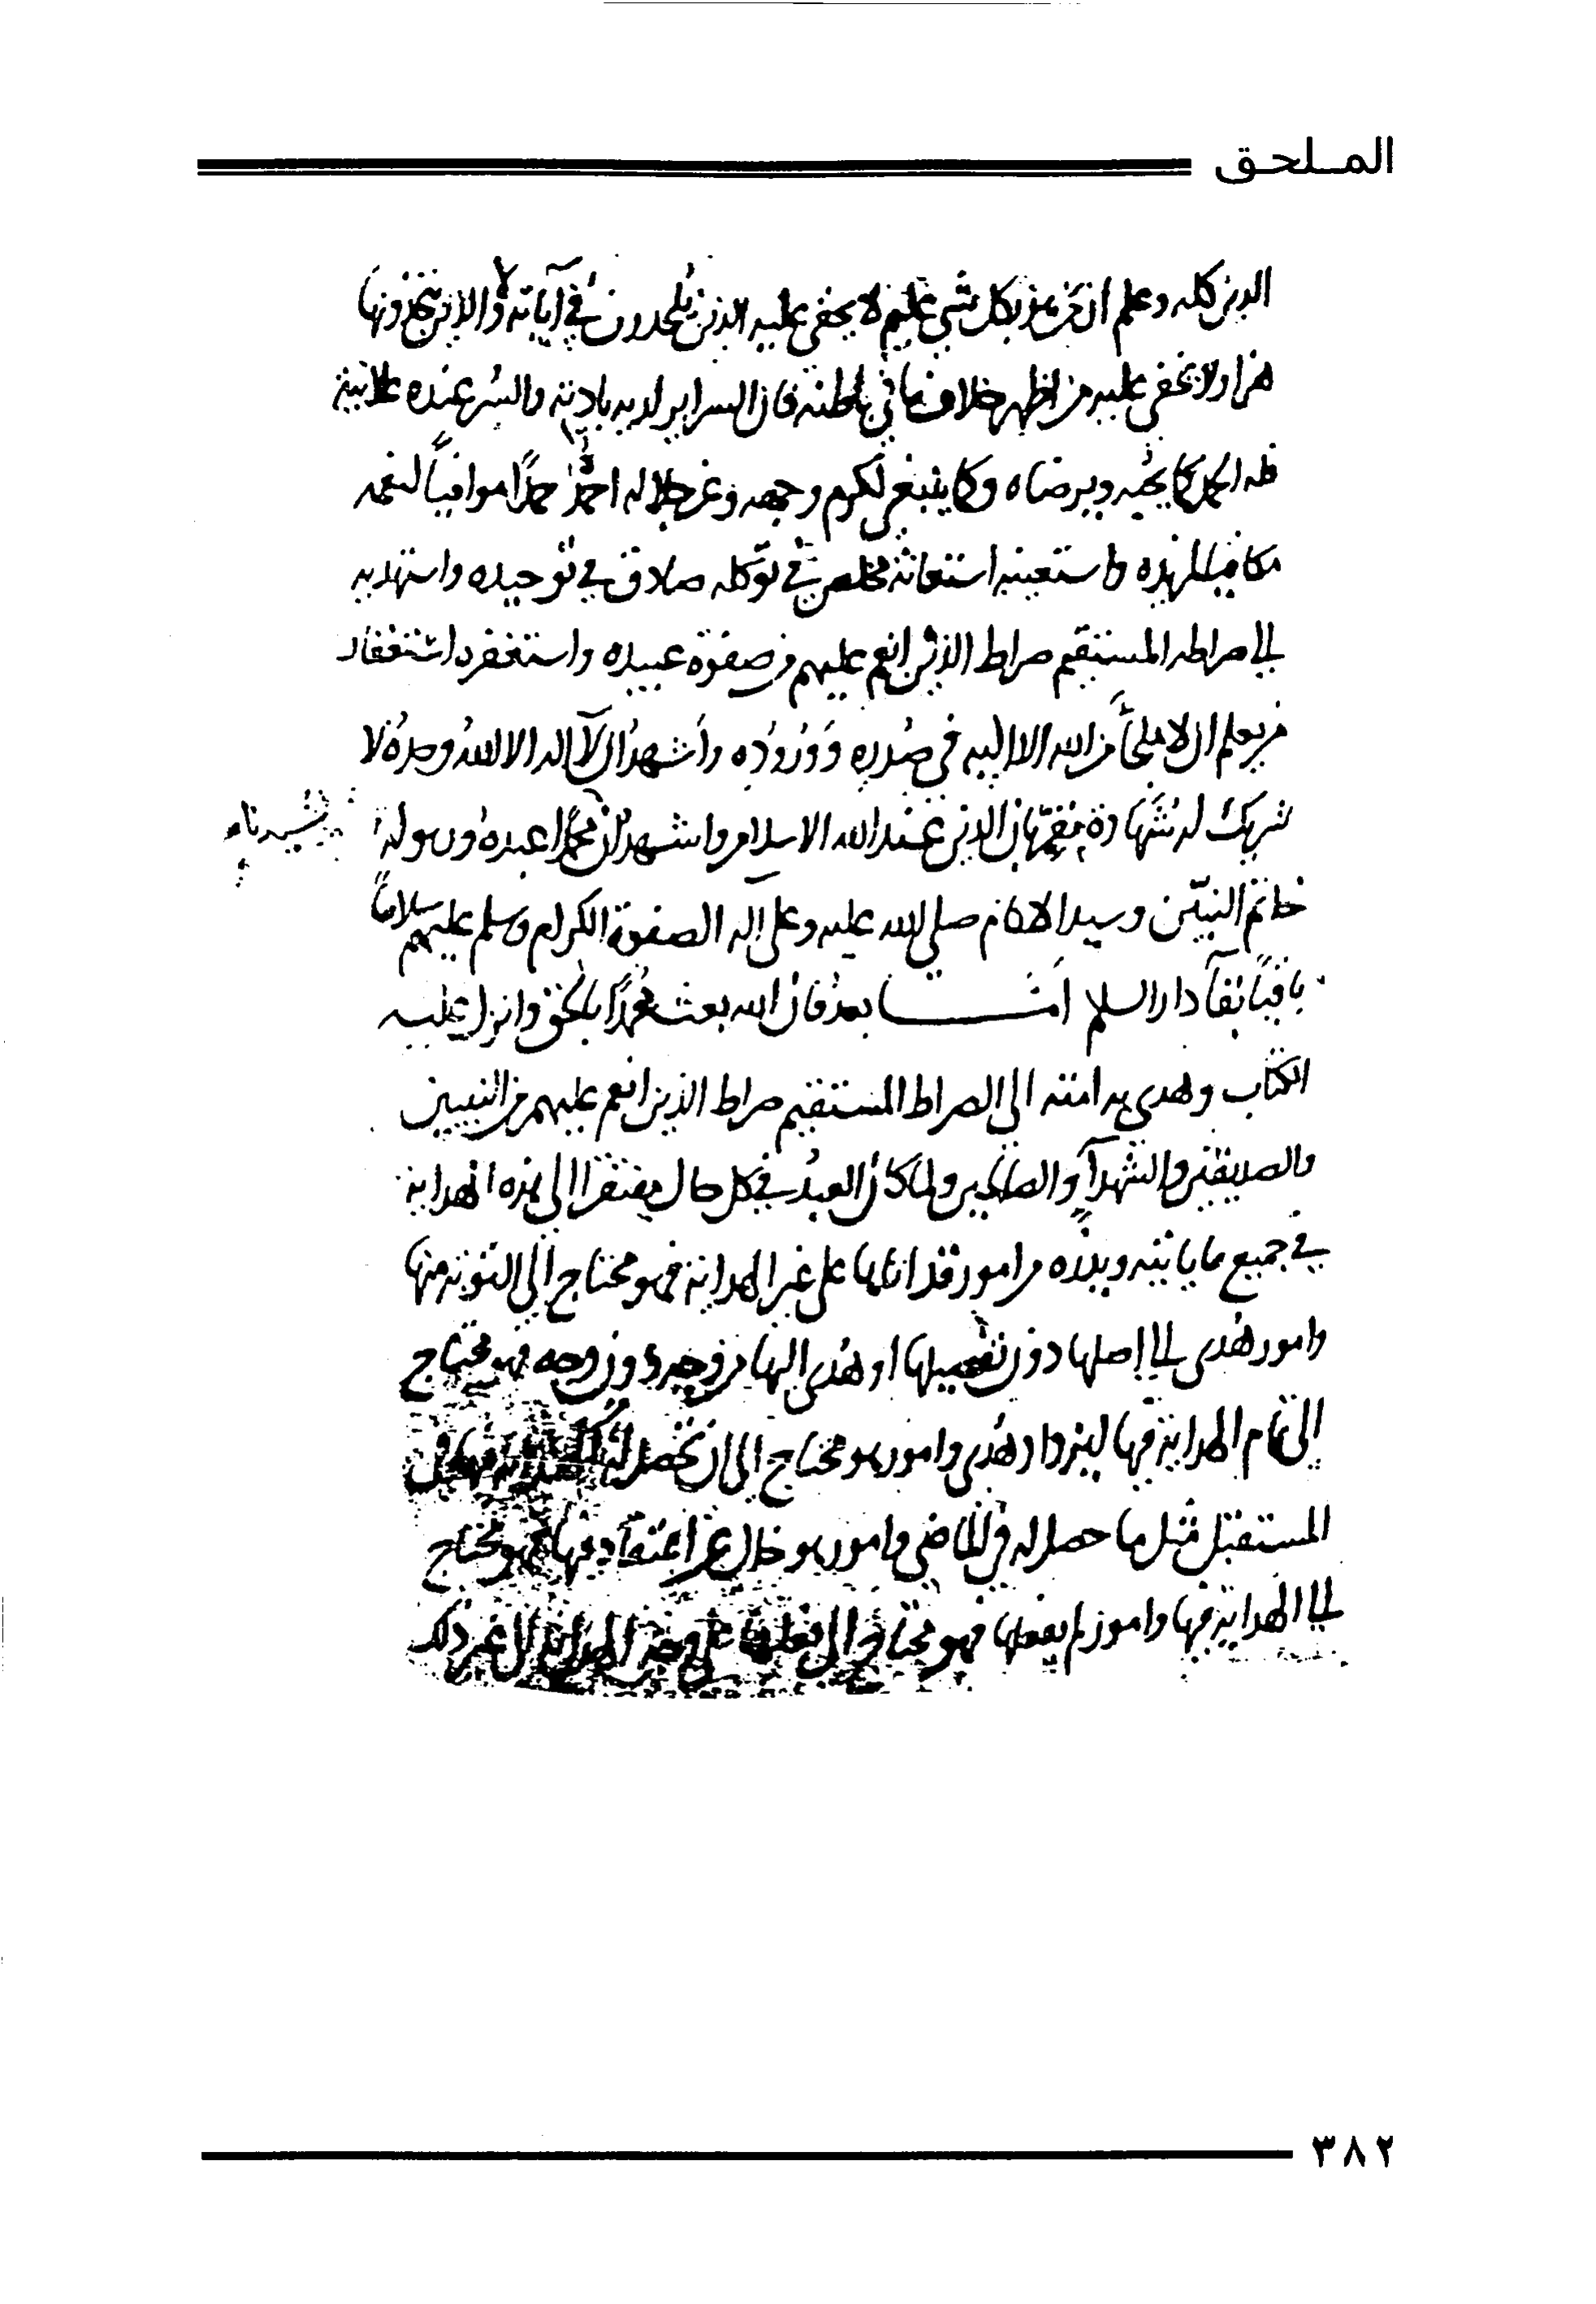 الملحق
الدين كله وعلم ان من هو بكل شي عليم لا يخفى عليه الذين يلحدون في آياته ولا الذين يتخذونها
هزوا ولا يخفى عليه من اظهر خلاف ما في باطنه فان السراير لديه بادية والسر عنده علانية
فله الحمد كما يحبه ويرضاه وكما ينبغي لكرم وجهه وعز جلاله احمده حمدًا موافيًا لنعمه
مكافيا لمزيده واستعينه استعانة مخلص في توكله صادق في توحيده واستهديه
الى صراطه المستقيم صراط الذين انعم عليهم من صفوة عبيده واستغفره استغفار
من يعلم ان لا ملجأ من الله الا اليه في صدوره ووروده واشهد ان لا اله الا الله وحده لا
شريك له شهادة مقر بان الدين عند الله الاسلام واشهد ان محمدًا عبده ورسوله
خاتم النبيّن وسيد الانام صلى الله عليه وعلى اله الصفوة الكرام وسلم عليهم سلامًا
باقيًا بقآ دار السلم امــا بعد فان الله بعث محمدًا بالحق وانزل عليه
الكتاب وهدى به امته الى الصراط المستقيم صراط الذين انعم عليهم من النبيين
والصديقين والشهدآ والصالحين ولما كان العبد في كل حال مفتقرا الى هذه الهداية
في جميع ما ياتيه ويذره من امور قد اتاها على غير الهداية فهو محتاج الى التوبة منها
وامور هدى الى اصلها دون تفصيلها او هدى اليها من وجه دون وجه فهو محتاج
الى تمام الهداية فيها ليزداد هدى وامور هو محتاج الى ان تحصل له من الهداية فيها في
المستقبل مثل ما حصل له في الماضي وامور هو خال عن اعتقاد فيها فهو محتاج
الى الهداية فيها وامور لم يفعلها فهو محتاج الى فعلها على وجه الهداية الى غير ذلك
٣٨٢